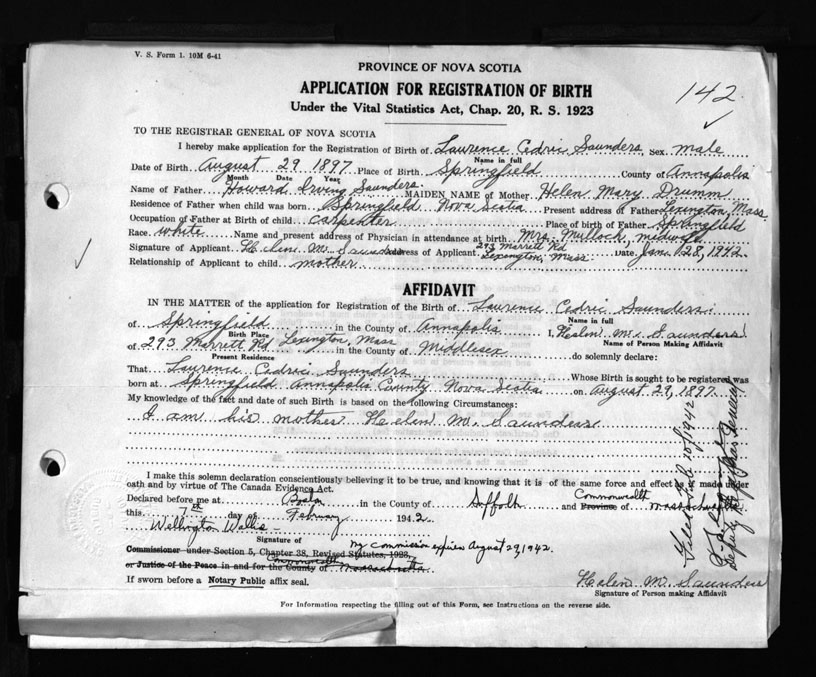 V. S. Form 1. 10M 6-41
PROVINCE OF NOVA SCOTIA
APPLICATION FOR REGISTRATION OF BIRTH
Under the Vital Statistics Act, Chap. 20, R. S. 1923
142
TO THE REGISTRAR GENERAL OF NOVA SCOTIA
I hereby make application for the Registration of Birth of Laurence Cedric Saunders Sex male
Name in full
Date of Birth August 29 1897 Place of Birth Springfield County of Annapolis
Month Date Year
Name of Father Howard Irving Saunders MAIDEN NAME of Mother Helen Mary Drumm
Residence of Father when child was born Springfield Nova Scotia Present address of Father Lexington, Mass
Occupation of Father at Birth of child carpenter Place of birth of Father Springfield
Race white Name and present address of Physician in attendance at birth Mrs. Mullock, midwife
Signature of Applicant Helen M. Saunders Address of Applicant 293 Marrett Rd Lexington, Mass. Date Jan 28, 1942
Relationship of Applicant to child mother
AFFIDAVIT
IN THE MATTER of the application for Registration of the Birth of Laurence Cedric Saunders
Name in full
of Springfield in the County of Annapolis I, Helen M. Saunders
Birth Place Name of Person Making Affidavit
of 293 Marrett Rd Lexington, Mass in the County of Middlesex do solemnly declare:
Present Residence
That Laurence Cedric Saunders Whose Birth is sought to be registered was
born at Springfield Annapolis County Nova Scotia on August 29, 1897
My knowledge of the fact and date of such Birth is based on the following Circumstances:
I am his mother Helen M. Saunders
I make this solemn declaration conscientiously believing it to be true, and knowing that it is of the same force and effect as if made under
oath and by virtue of The Canada Evidence Act.
Declared before me at Boston in the County of Suffolk and Province Commonwealth of Massachusetts
this 7th day of February 1942
Wellington Wells
Signature of
My commission expires August 29, 1942.
Commissioner under Section 5, Chapter 38, Revised Statutes, 1923,
or Justice of the Peace in and for the County Commonwealth of Massachusetts
If sworn before a Notary Public affix seal.
Helen M Saunders
Signature of Person making Affidavit
For Information respecting the filling out of this Form, see Instructions on the reverse side.
Filed Feb 10/1942
Deputy